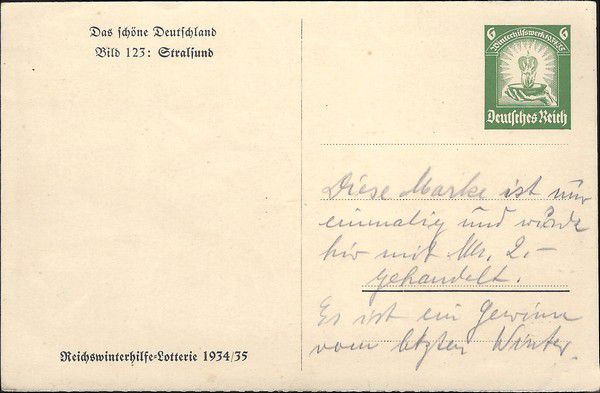 Das schöne Deutschland
Bild 123: Stralsund
6 6
Winterhilfswerk 1934/35
Deutsches Reich
Diese Marke ist nur
einmalig und wurde
hir mit Mk. 2.-
gehandelt.
Es ist ein Gewinn
vom letzten Winter.
Reichswinterhilfe-Lotterie 1934/35